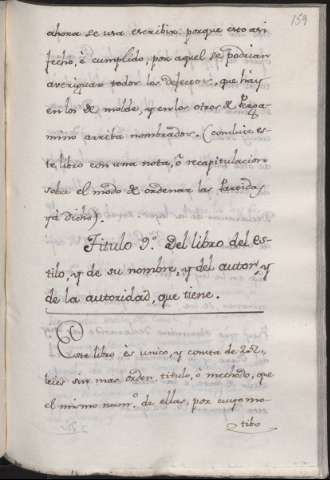 159
ahora se usa escribir porque esto asi
fecho, è cumplido, por aquel se podrian
averiguar todos los defectos, que hay
en los de molde, y en los otros de Perga-
mino arriba nombrados. (concluie es-
te libro con una nota, ò recapitulacion
sobre el modo de ordenar las
ya dichas).
Titulo 9.º Del libro del es-
tilo, y de su nombre, y del autor, y
de la autoridad, que tiene.
Este libro es unico, y consta de 252
leies sin mas orden, titulo, ò methodo, que
el mismo num.º de ellas, por cuyo mo-
tibo